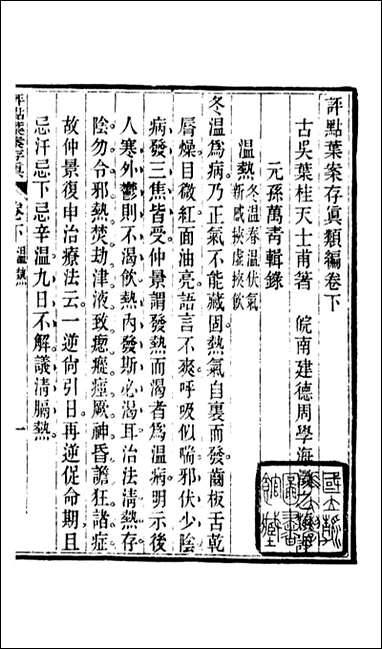 評點葉案存眞類編卷下
古吳葉桂天士甫著 皖南建德周學海澂之
元孫萬青輯錄
溫熱 冬溫春溫伏氣
新感挾虛挾飲
冬溫爲病乃正氣不能藏固熱氣自裏而發齒板舌乾
脣燥目微紅面油亮語言不爽呼吸似喘邪伏少陰
病發三焦皆受仲景謂發熱而渴者爲溫病明示後
人寒外鬱則不渴飲熱內發斯必渴耳治法清熱存
陰勿令邪熱焚劫津液致瘛瘲痙厥神昏譫狂諸症
故仲景復申治療法云一逆尙引日再逆促命期且
忌汗忌下忌辛溫九日不解議清膈熱
評點葉案存眞 卷下 溫熱 一